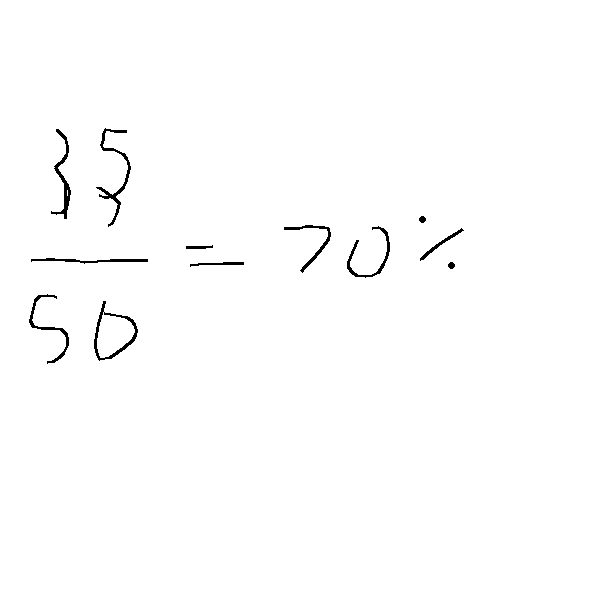 35
50
= 70%